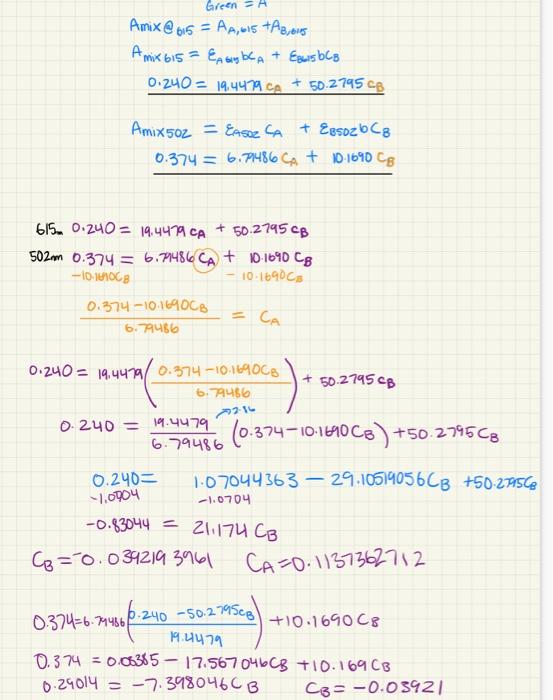 Green = A
Amix@615 = A_A,615 + A_B,615
Amix615 = ε_A615 b C_A + ε_B615 b C_B
0.240 = 19.4479 C_A + 50.2795 C_B
Amix502 = ε_A502 C_A + ε_B502 b C_B
0.374 = 6.79486 C_A + 10.1690 C_B
615m 0.240 = 19.4479 C_A + 50.2795 C_B
502m 0.374 = 6.79486 C_A + 10.1690 C_B
-10.1690 C_B - 10.1690 C_B
0.374 - 10.1690 C_B
= C_A
6.79486
0.240 = 19.4479 ( 0.374 - 10.1690 C_B / 6.79486 ) + 50.2795 C_B
→2.86
0.240 = 19.4479 / 6.79486 (0.374 - 10.1690 C_B) + 50.2795 C_B
0.240 = 1.07044363 - 29.10519056 C_B + 50.2795 C_B
-1.0704 -1.0704
-0.83044 = 21.174 C_B
C_B = -0.0392193961 C_A = 0.1137362712
0.374 = 6.79486 ( 0.240 - 50.2795 C_B / 19.4479 ) + 10.1690 C_B
0.374 = 0.08385 - 17.567046 C_B + 10.169 C_B
0.29014 = -7.398046 C_B C_B = -0.03921